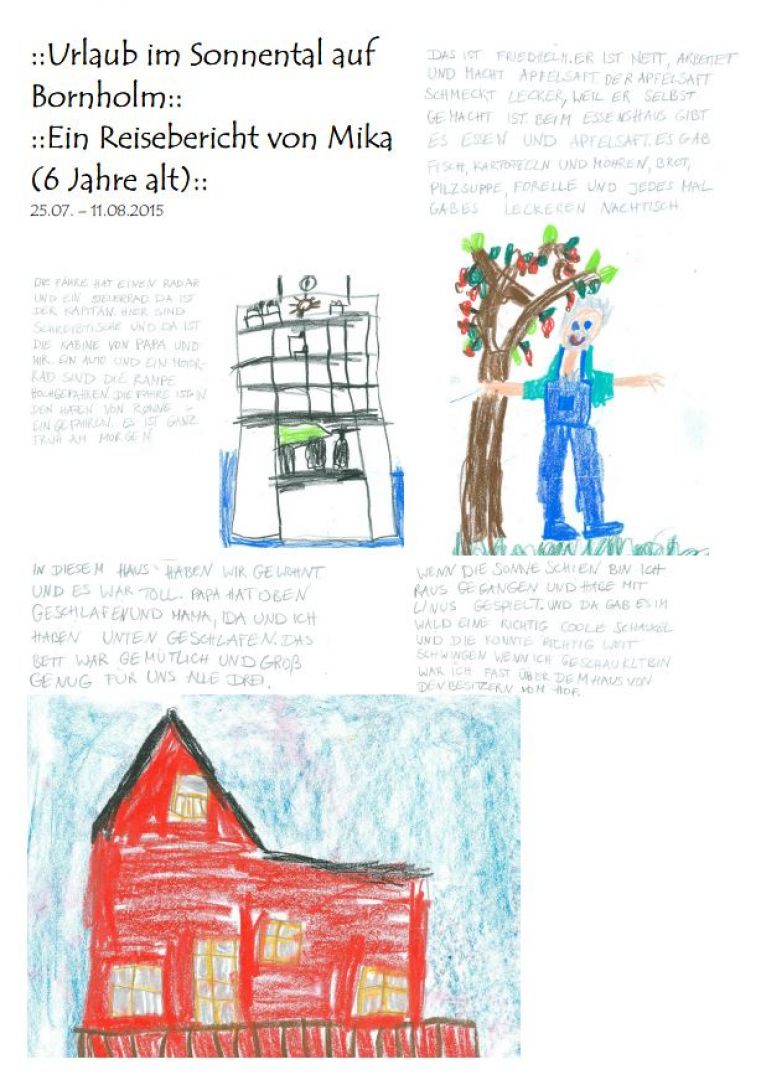 ::Urlaub im Sonnental auf
Bornholm::
::Ein Reisebericht von Mika
(6 Jahre alt)::
25.07. – 11.08.2015
DAS IST FRIEDHELM. ER IST NETT, ARBEITET
UND MACHT APFELSAFT DER APFELSAFT
SCHMECKT LECKER, WEIL ER SELBST
GEMACHT IST. BEIM ESSENSHAUS GIBT
ES ESSEN UND APFELSAFT. ES GAB
FISCH, KARTOFFELN UND MÖHREN, BROT,
PILZSUPPE, FORELLE UND JEDES MAL
GAB ES LECKEREN NACHTISCH.
DIE FÄHRE HAT EINEN RADAR
UND EIN STEUERRAD. DA IST
DER KAPITÄN. HIER SIND
SCHREIBTISCHE UND DA IST
DIE KABINE VON PAPA UND
MIR. EIN AUTO UND EIN MOTOR-
RAD SIND DIE RAMPE
HOCHGEFAHREN. DIE FÄHRE IST IN
DEN HAFEN VON RØNNE
EINGEFAHREN. ES IST GANZ
FRÜH AM MORGEN
IN DIESEM HAUS HABEN WIR GEWOHNT
UND ES WAR TOLL. PAPA HAT OBEN
GESCHLAFEN UND MAMA, IDA UND ICH
HABEN UNTEN GESCHLAFEN. DAS
BETT WAR GEMÜTLICH UND GROß
GENUG FÜR UNS ALLE DREI.
WENN DIE SONNE SCHIEN BIN ICH
RAUS GEGANGEN UND HABE MIT
LINUS GESPIELT. UND DA GAB ES IM
WALD EINE RICHTIG COOLE SCHAUKEL
UND DIE KONNTE RICHTIG WEIT
SCHWINGEN WENN ICH GESCHAUKLT BIN
WAR ICH FAST ÜBER DEM HAUS VON
DEN BESITZERN VOM HOF.